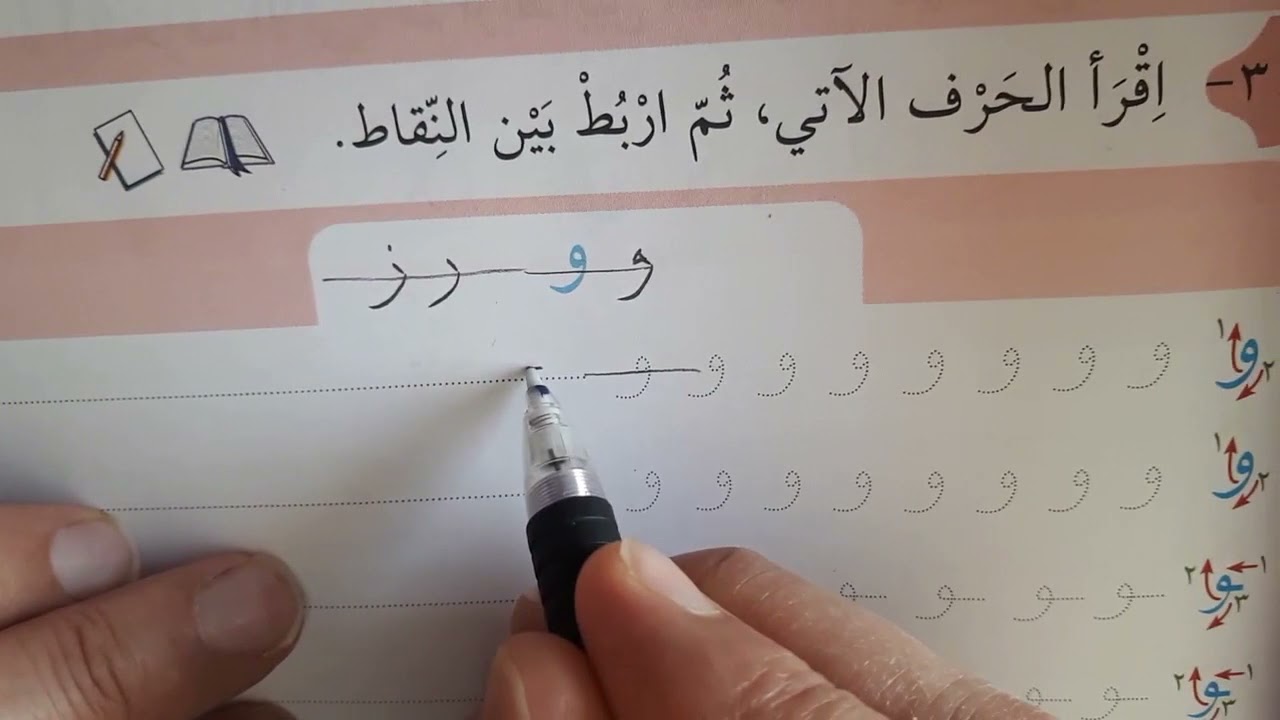 ٣- اِقْرَأ الحَرْف الآتي، ثُمّ ارْبُطْ بَيْن النِّقاط.
و و ر ز
١ ٢ و و و و و و و و و
١ ٢ و و و و و و و و و
١ ٢ ٣ ـو ـو ـو ـو ـو
١ ٢ ٣ ـو ـو ـو